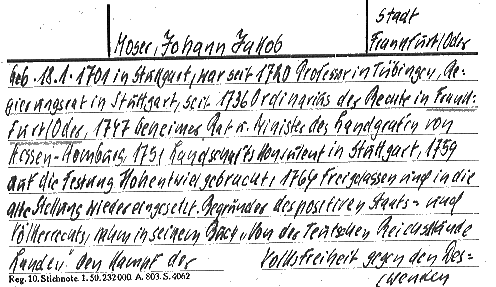 Stadt
Moser, Johann Jakob Frankfurt/Oder
geb. 18.1.1701 in Stuttgart, war seit 1720 Professor in Tübingen, Re-
gierungsrat in Stuttgart, seit 1736 Ordinarius des Rechts in Frank-
furt/Oder, 1747 Geheimer Rat u. Minister des Landgrafen von
Hessen-Homburg, 1751 Landschafts Konsulent in Stuttgart, 1759
auf die Festung Hohentwiel gebracht, 1764 freigelassen und in die
alte Stellung wiedereingesetzt. Begründer des positiven Staats= und
Völkerrechts, nahm in seinem Buch „Von der Teutschen Reichsstände
Landen" den Kampf der Volksfreiheit gegen den Des=
Reg. 10. Stichnote. 1. 50. 232000. A. 803. S. 4062